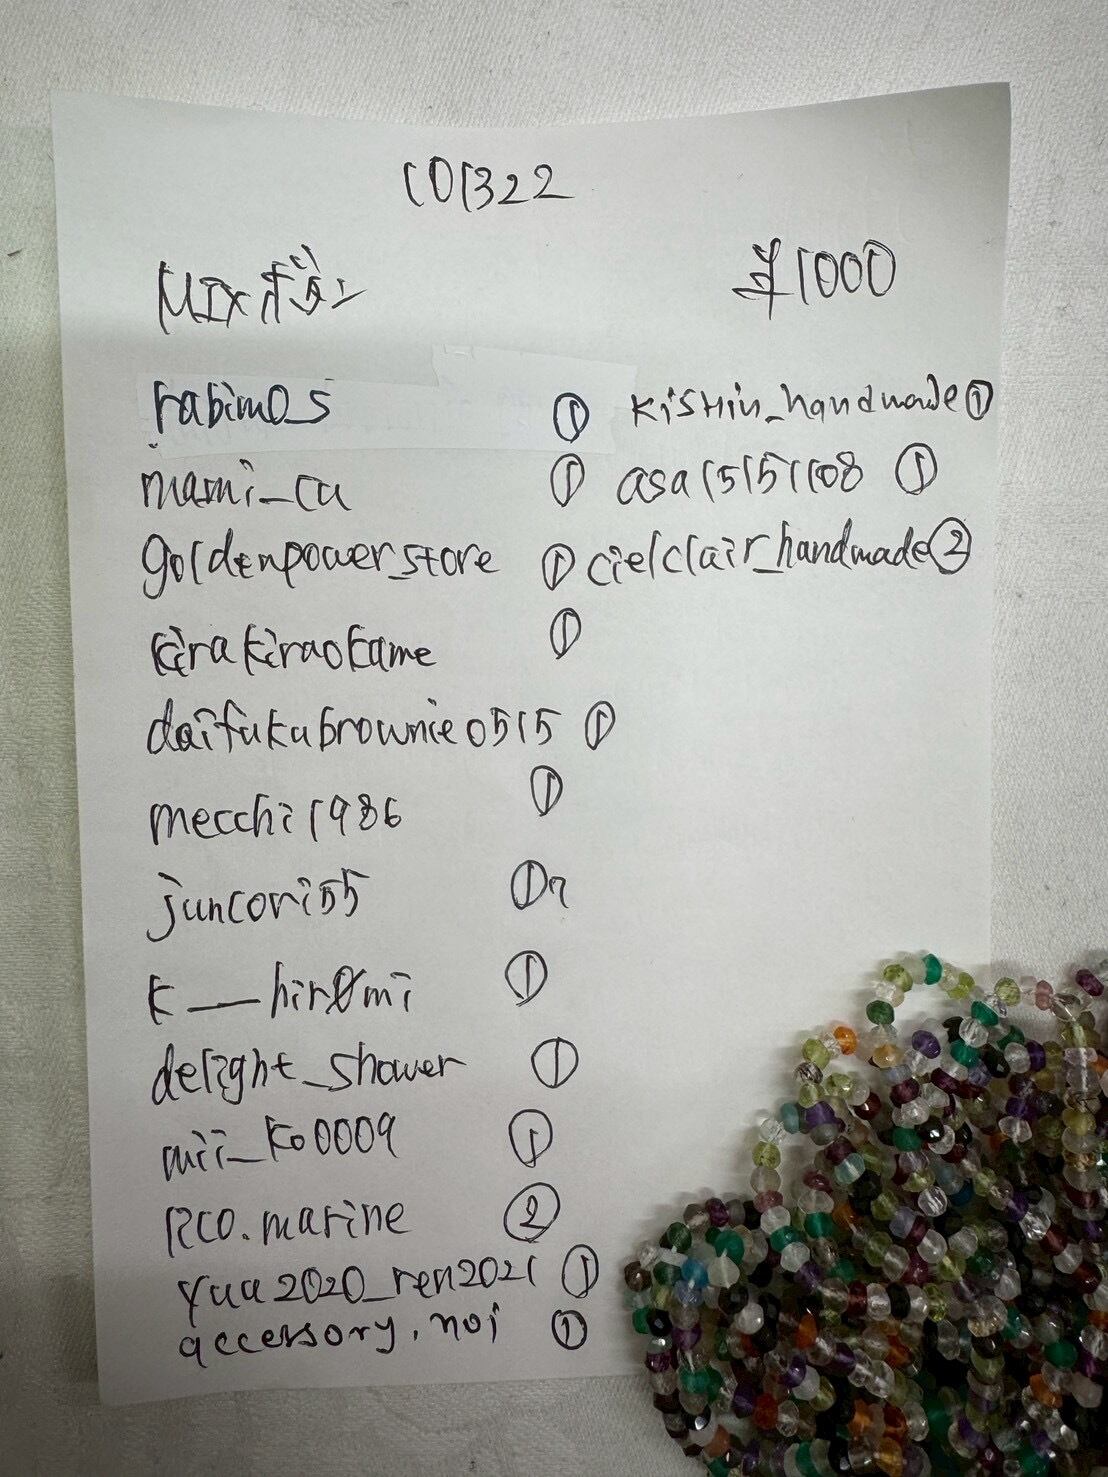 101322
MIX ボタン ¥1000
rabimo_s ①
mami_cu ①
goldenpower_store ①
kirakiraokame ①
daifukubrownie0515 ①
mecchi1986 ①
juncori55 ①
k__hir0mi ①
delight_shower ①
mii_ko0009 ①
rco.marine ②
yua2020_ren2021 ①
accessory.noi ①
kishin_handmade ①
asa15151108 ①
cielclair_handmade ②